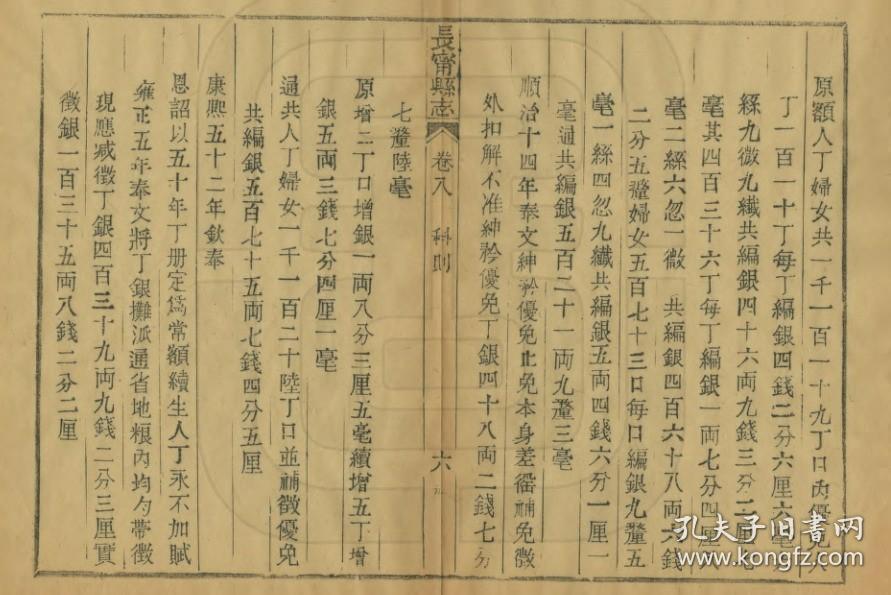 原額人丁婦女共一千一百一十九丁口內優免人
丁一百一十丁每丁編銀四錢二分六厘六毫
絲九微九纖共編銀四十六兩九錢三分二厘
毫其四百三十六丁每丁編銀一兩七分四厘
毫二絲六忽一微 共編銀四百六十八兩六錢
二分五釐婦女五百七十三口每口編銀九釐五
毫一絲四忽九纖共編銀五兩四錢六分一厘一
毫通共編銀五百二十一兩九釐三毫
順治十四年奉文紳衿優免止免本身差徭補免徵
外扣解不准紳衿優免丁銀四十八兩二錢七分
七釐陸毫
長甯縣志 卷八 科則 六
原增二丁口增銀一兩八分三厘五毫續增五丁增
銀五兩三錢七分四厘一毫
通共人丁婦女一千一百二十陸丁口並補徵優免
共編銀五百七十五兩七錢四分五厘
康熙五十二年欽奉
恩詔以五十年丁册定爲常額續生人丁永不加賦
雍正五年奉文將丁銀攤派通省地粮內均勻帶徵
現應减徵丁銀四百三十九兩九錢二分三厘實
徵銀一百三十五兩八錢二分二厘
孔夫子旧书网
www.kongfz.com